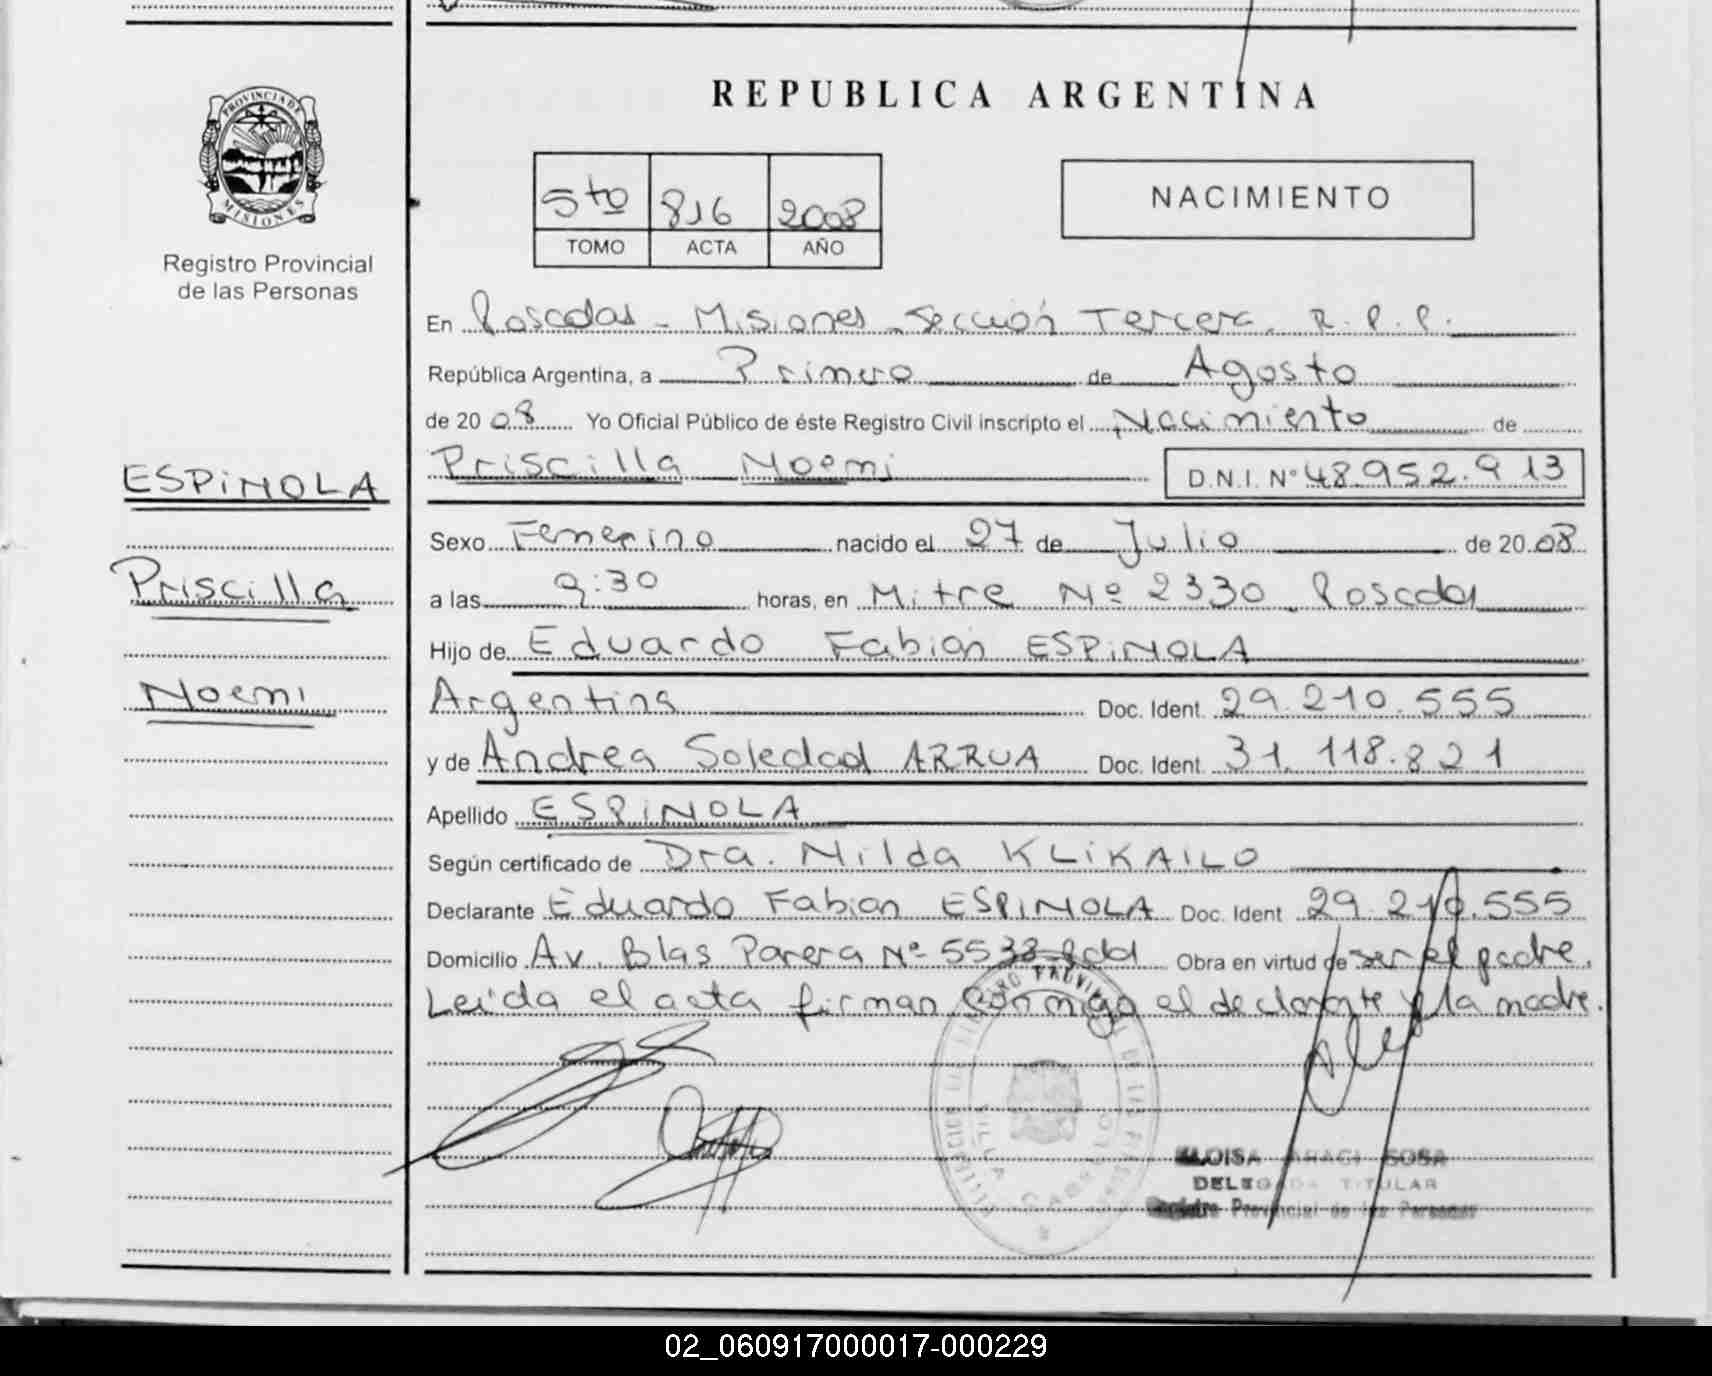 REPUBLICA ARGENTINA
PROVINCIA DE
MISIONES
Registro Provincial
de las Personas
5to 816 2008
TOMO ACTA AÑO
NACIMIENTO
En Posadas - Misiones - Sección Tercera. R. P. P.
República Argentina, a Primero de Agosto
de 2008 Yo Oficial Público de éste Registro Civil inscripto el Nacimiento de
Priscilla Noemi D.N.I. N° 48.952.913
ESPINOLA
Priscilla
Noemi
Sexo Femenino nacido el 27 de Julio de 2008
a las 9:30 horas, en Mitre Nº 2330 Posadas
Hijo de Eduardo Fabián ESPINOLA
Argentina Doc. Ident. 29.210.555
y de Andrea Soledad ARRUA Doc. Ident. 31.118.821
Apellido ESPINOLA
Según certificado de Dra. Nilda KLIKAILO
Declarante Eduardo Fabian ESPINOLA Doc. Ident 29.210.555
Domicilio Av. Blas Parera Nº 5533 Pdd Obra en virtud de ser el padre.
Leída el acta firman conmigo el declarante y la madre.
VILLA CABELLO
SOSA
DELEGADA TITULAR
Registro Provincial de las Personas
02_060917000017-000229